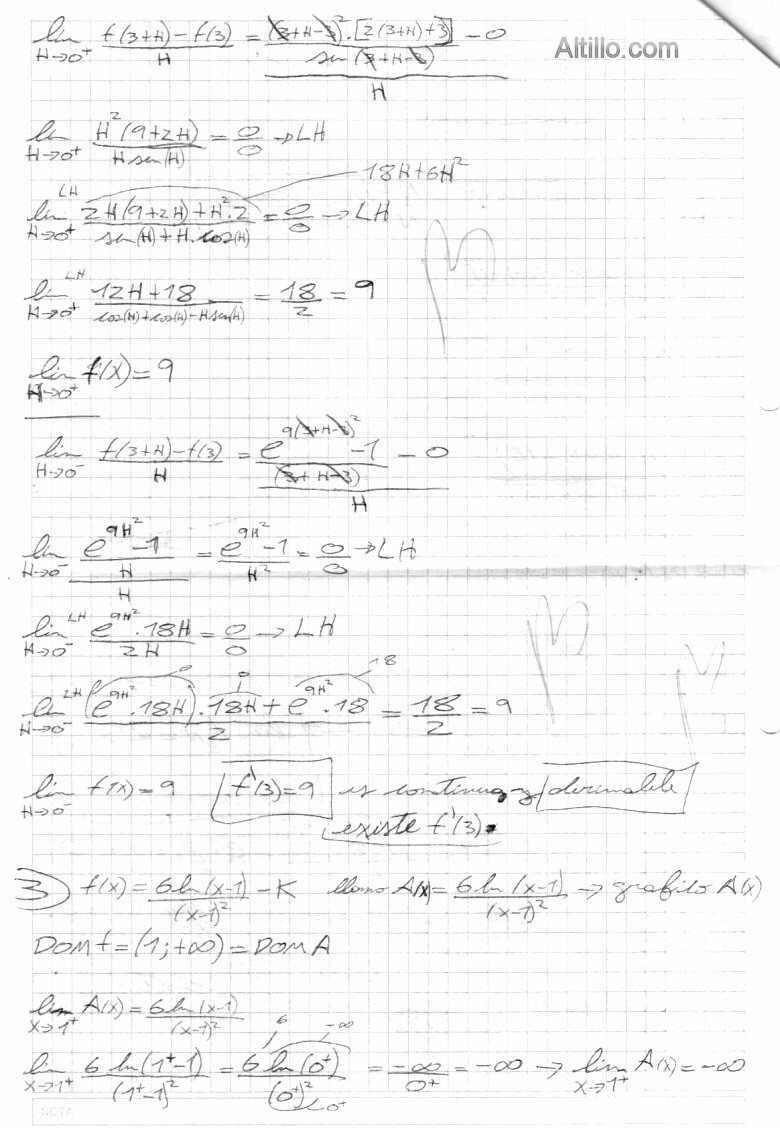 Altillo.com
lim H→0⁺ (f(3+H)-f(3))/H = ((3+H-3)².[2(3+H)+3]/sen(3+H-3) - 0)/H
lim H→0⁺ H²(9+2H)/(H sen(H)) = 0/0 → LH
18H+6H²
lim H→0⁺ LH (2H(9+2H)+H².2)/(sen(H)+H.cos(H)) = 0/0 → LH
lim H→0⁺ LH (12H+18)/(cos(H)+cos(H)-H sen(H)) = 18/2 = 9
lim H→0⁺ f(x) = 9
lim H→0⁻ (f(3+H)-f(3))/H = ((e^(9(3+H-3)²) - 1)/(3+H-3) - 0)/H
lim H→0⁻ ((e^(9H²) - 1)/H)/H = (e^(9H²) - 1)/H² = 0/0 → LH
lim H→0⁻ LH (e^(9H²).18H)/2H = 0/0 → LH
0 0 18
lim H→0⁻ LH ((e^(9H²).18H).18H + e^(9H²).18)/2 = 18/2 = 9
lim H→0⁻ f(x) = 9 f'(3)=9 es continua y derivable
existe f'(3).
3) f(x) = 6 ln(x-1)/(x-1)² - K llamo A(x) = 6 ln(x-1)/(x-1)² → grafico A(x)
DOM f = (1;+∞) = DOM A
lim x→1⁺ A(x) = 6 ln(x-1)/(x-1)²
6 -∞
lim x→1⁺ 6 ln(1⁺-1)/(1⁺-1)² = 6 ln(0⁺)/(0⁺)² = -∞/0⁺ = -∞ → lim x→1⁺ A(x) = -∞
0⁺
NOTA